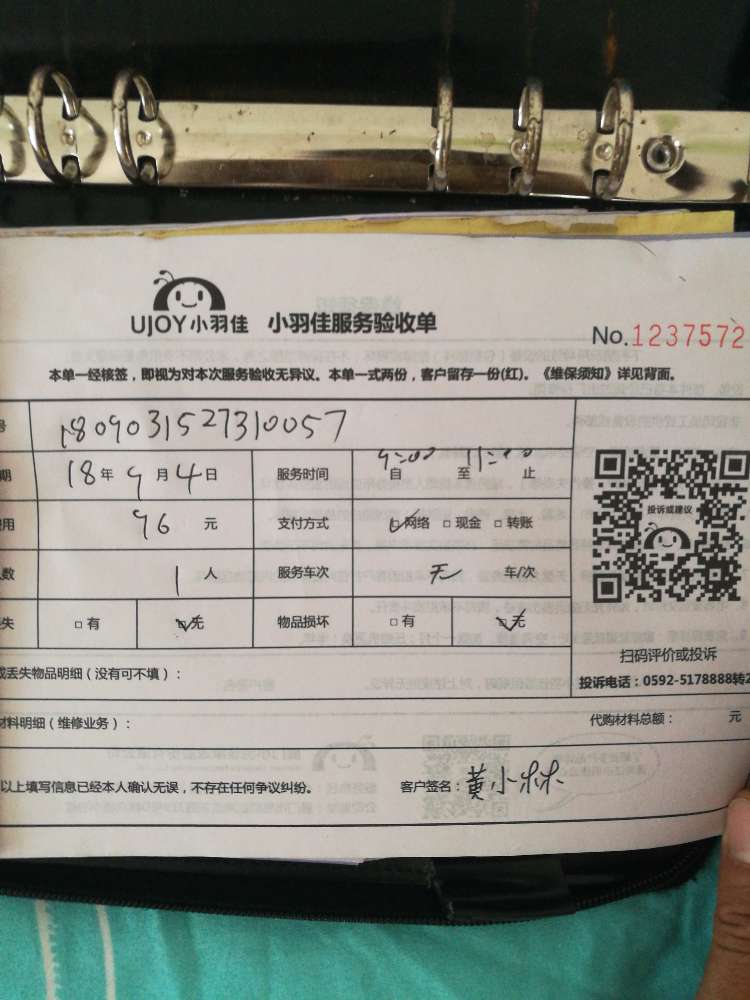 UJOY小羽佳 小羽佳服务验收单
No.1237572
本单一经核签，即视为对本次服务验收无异议。本单一式两份，客户留存一份(红)。《维保须知》详见背面。
号 1809031527310057
期 18年9月4日 服务时间 9:00自 至 11:00止
费用 96 元 支付方式 ☑网络 □现金 □转账
人数 1人 服务车次 无 车/次
失 □有 ☑无 物品损坏 □有 ☑无
投诉或建议
扫码评价或投诉
投诉电话：0592-5178888转2
或丢失物品明细（没有可不填）：
材料明细（维修业务）： 代购材料总额： 元
以上填写信息已经本人确认无误，不存在任何争议纠纷。 客户签名：黄小林